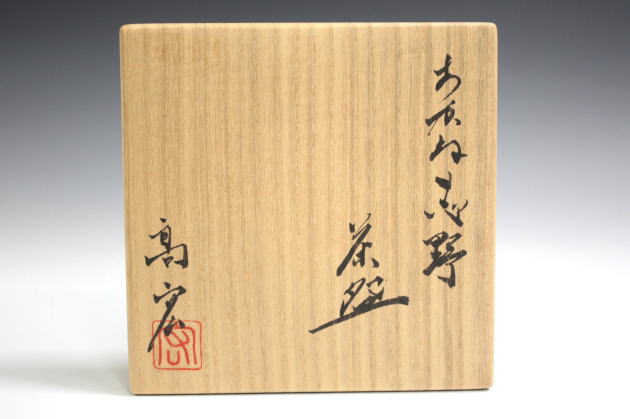 あかね志野
茶盌
高宏